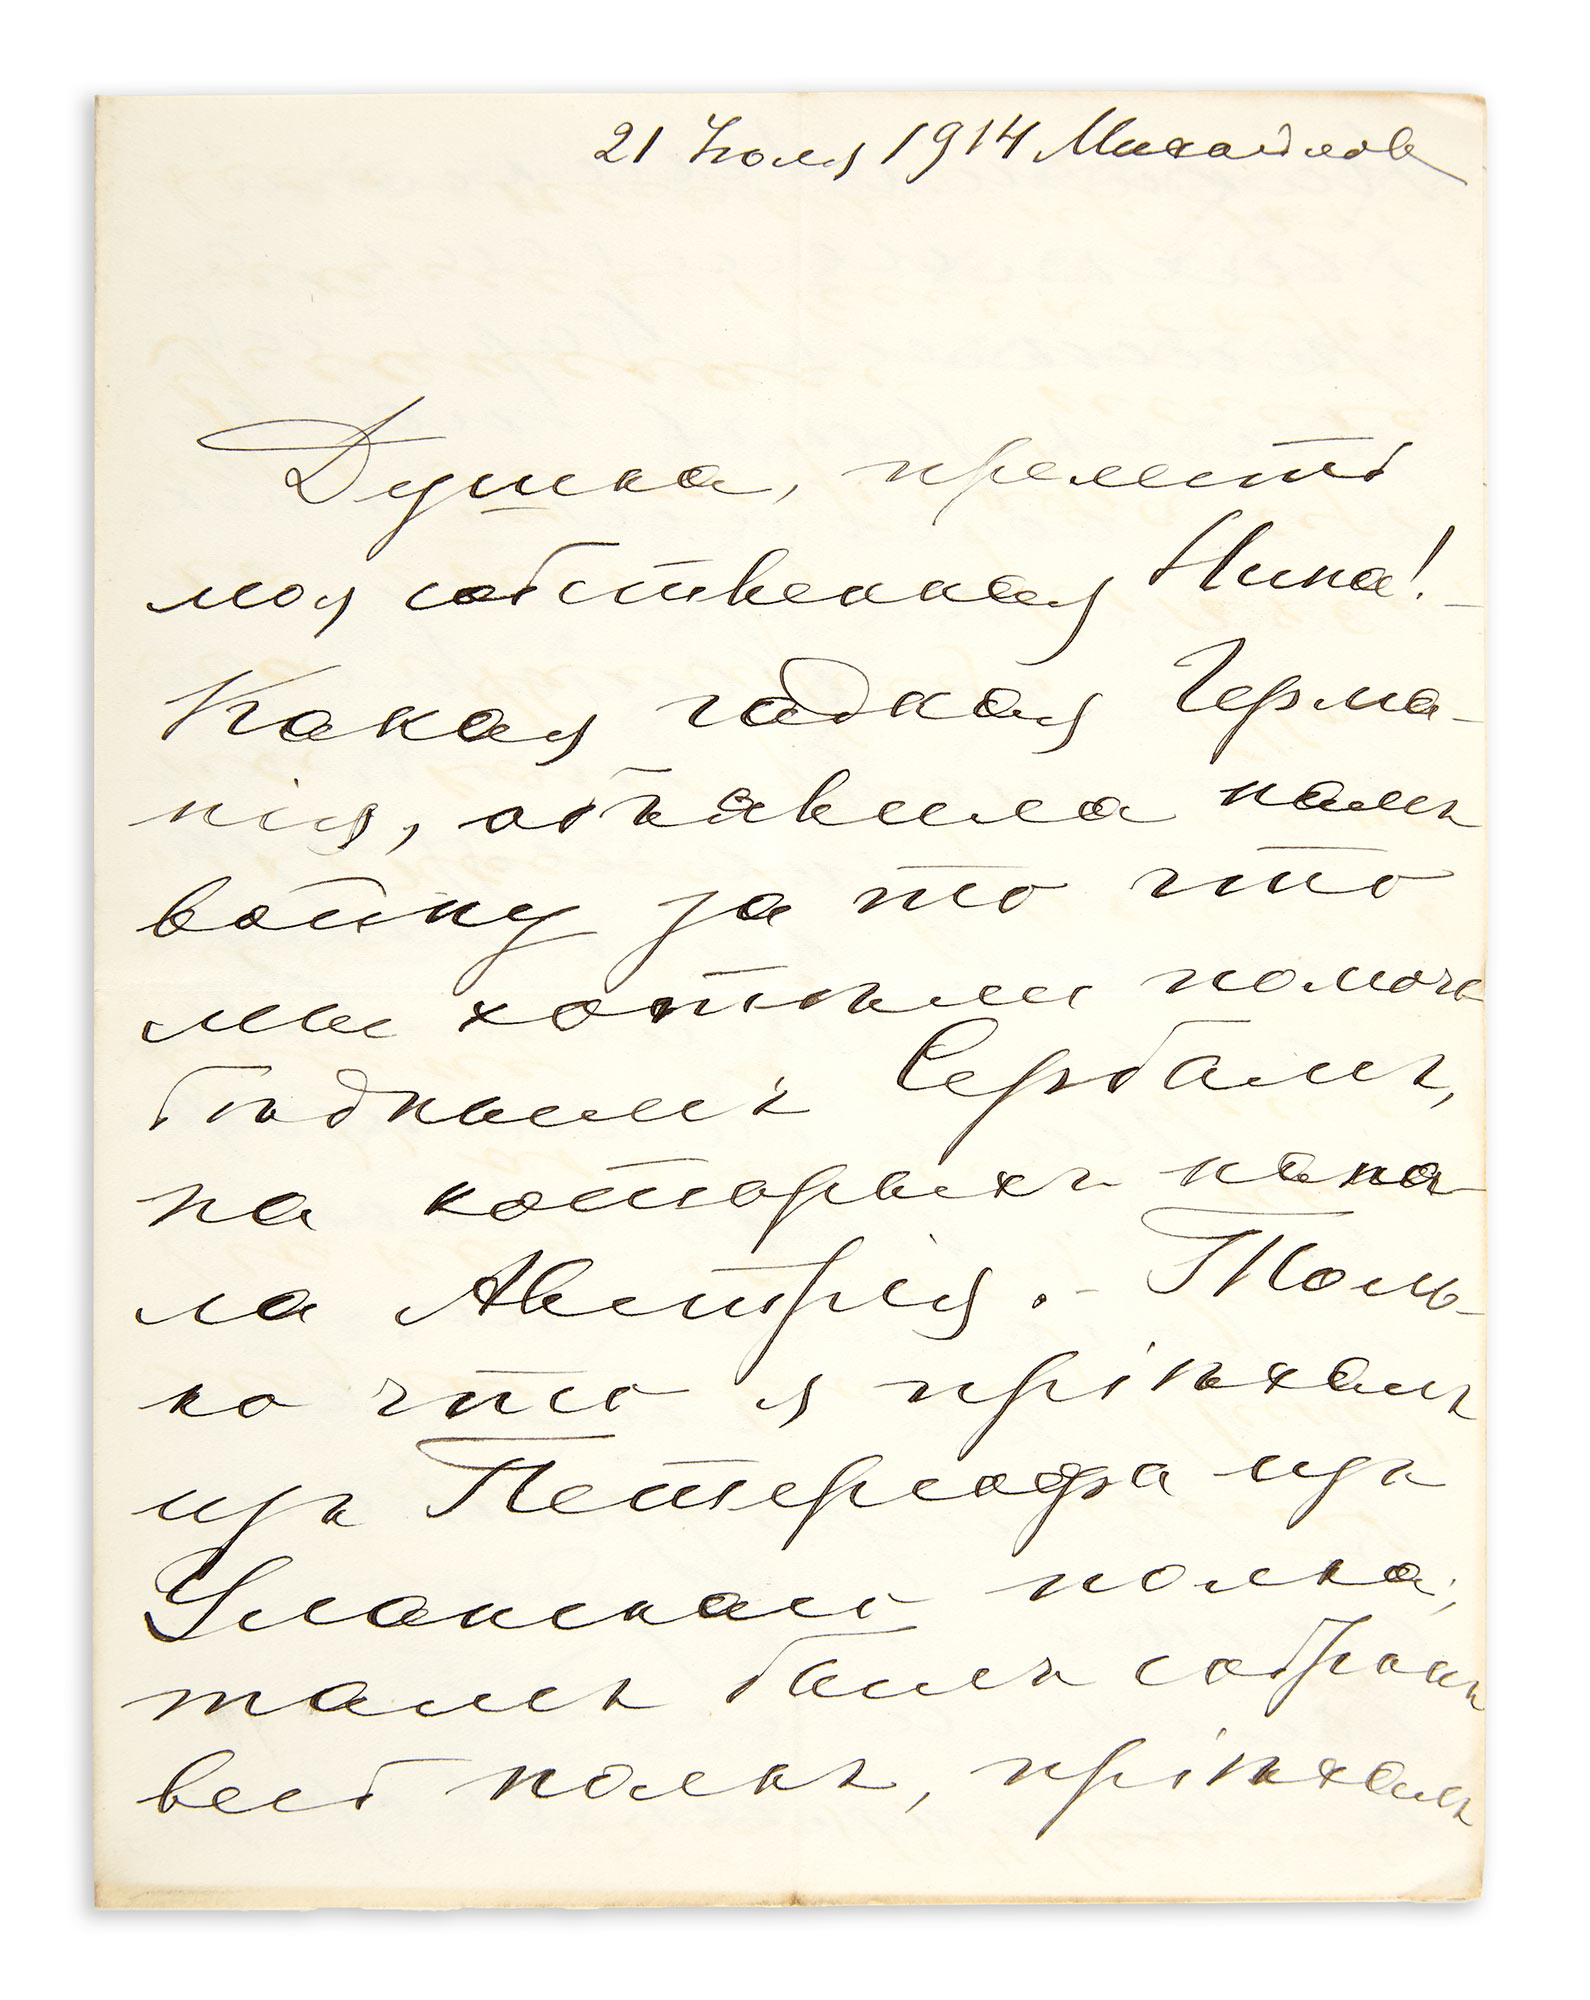 21 Iюля 1914 Михайлов
Душка, прелесть
моя собственная Нина! –
Какая гадкая Герма-
нiя, объявила намъ
войну за то что
мы хотѣли помочь
бѣднымъ Сербамъ,
на которыхъ напа-
ла Австрiя. – Толь-
ко что я прiѣхалъ
изъ Петергофа изъ
Уланскаго полка,
тамъ былъ собранъ
весь полкъ, прiѣхалъ